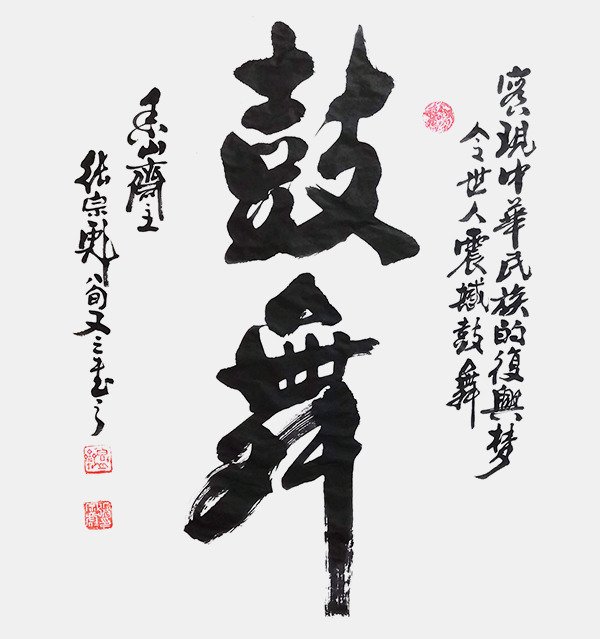 實現中華民族的復興梦
令世人震撼鼓舞
鼓舞
山齋主
張宗八旬又三書